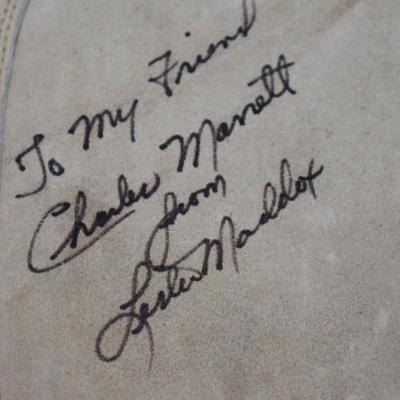 To My Friend
Charles Marrett
from
Lester Maddox